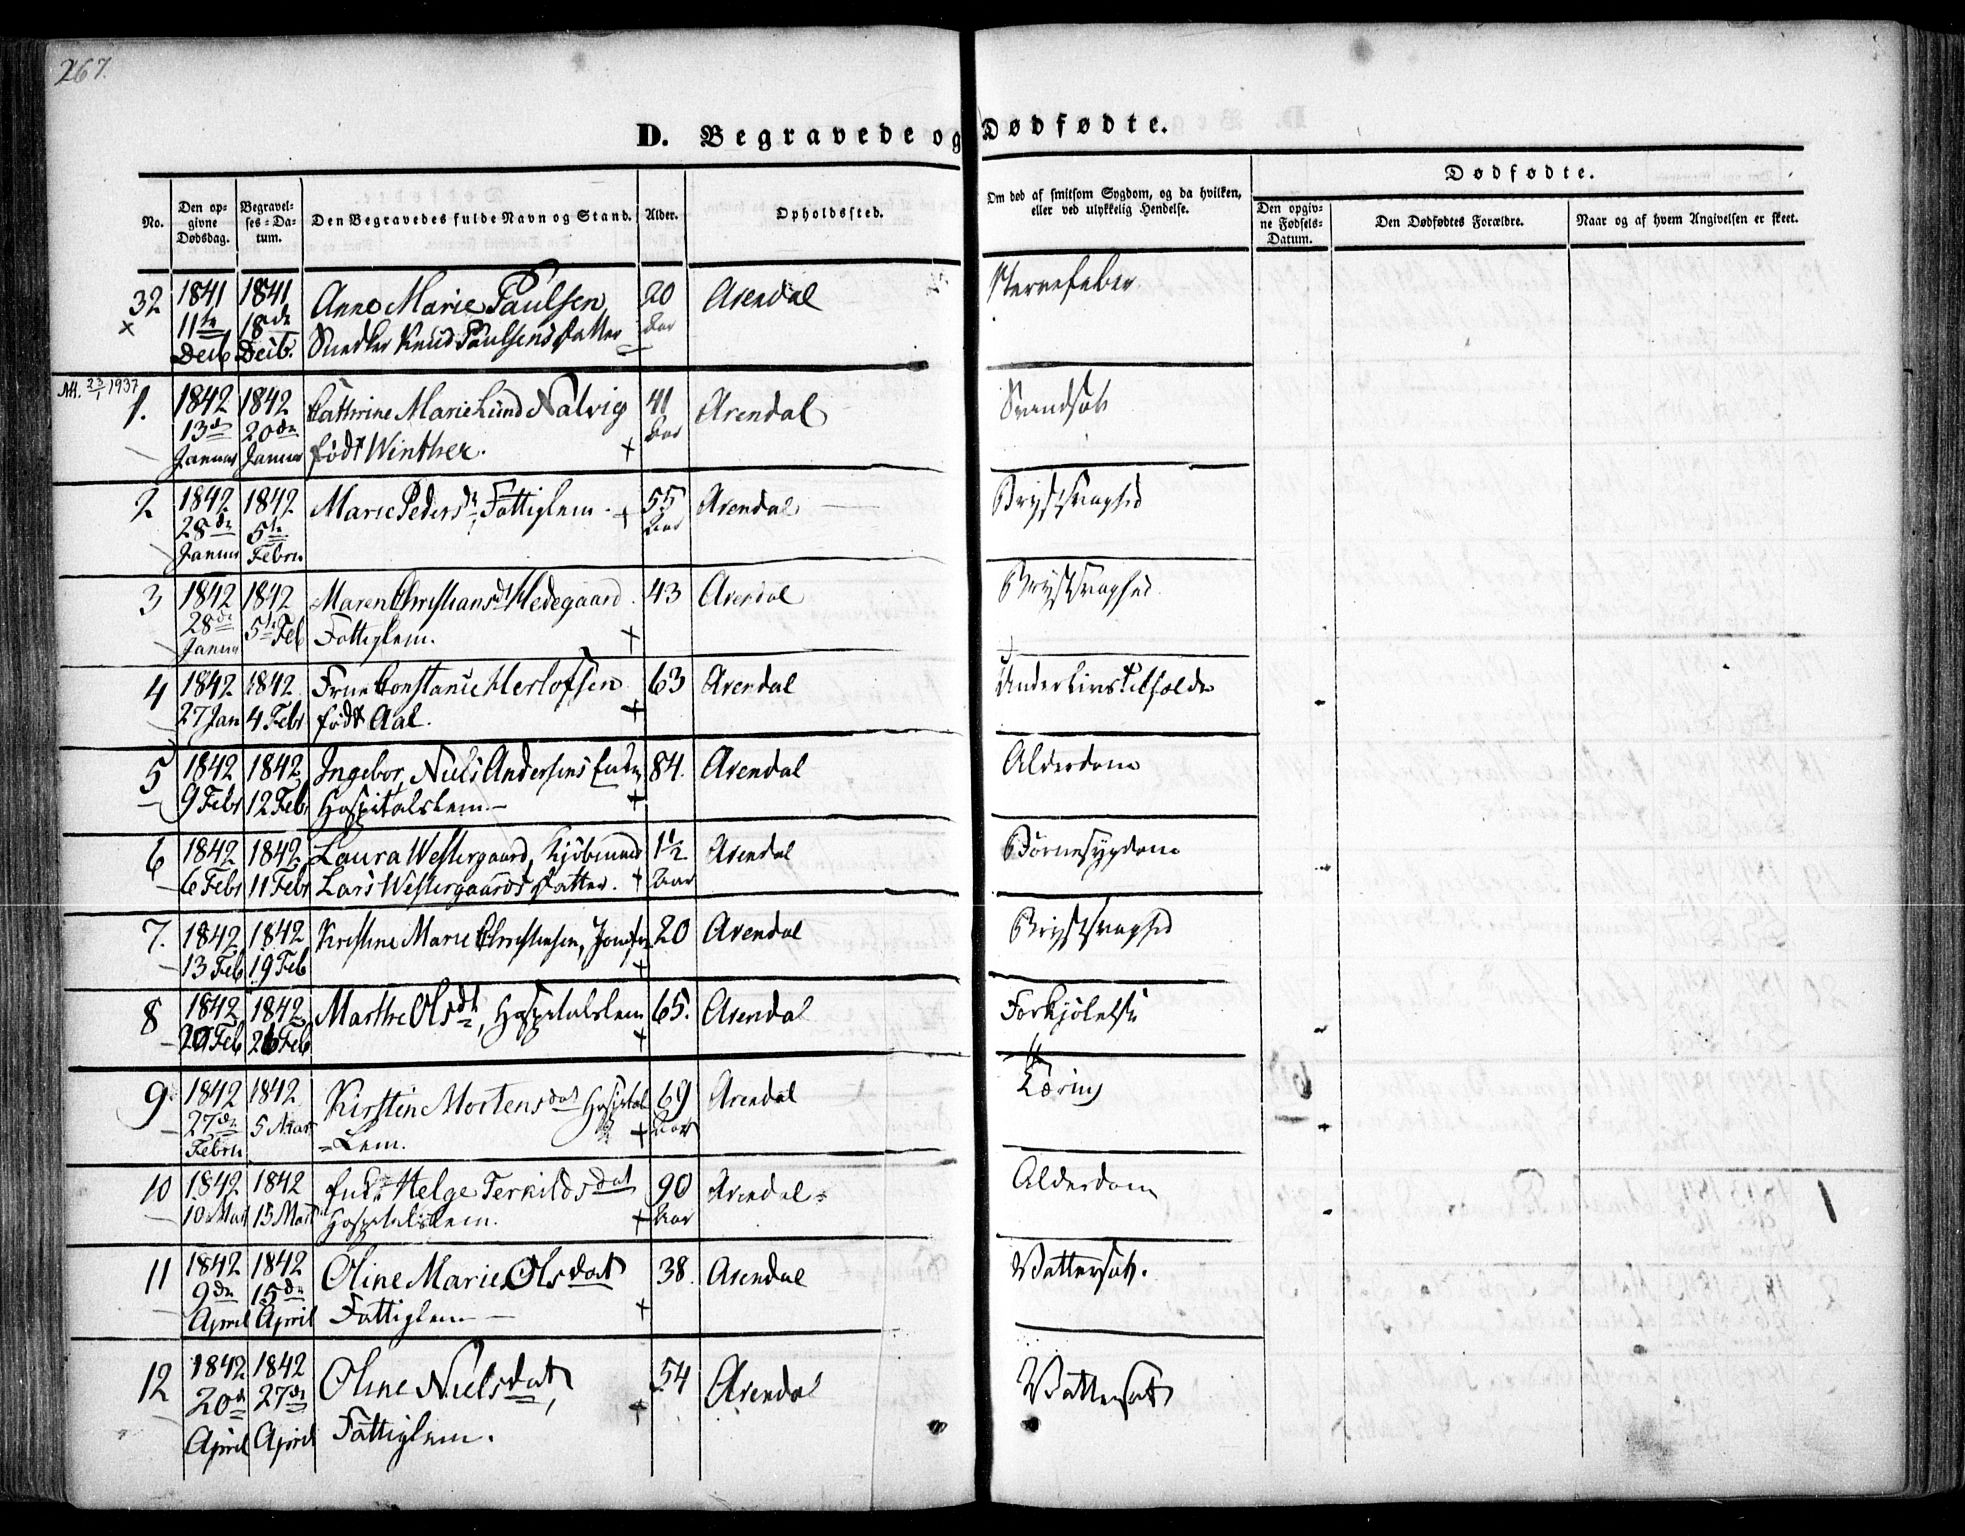 267.
D. Begravede og Dødfødte.
No.
Den opgivne Dødsdag.
Begravelses-Datum.
Den Begravedes fulde Navn og Stand.
Alder.
Opholdssted.
Om død af smitsom Sygdom, og da hvilken,
eller ved ulykkelig Hendelse.
Dødfødte.
Den opgivne Fødsels-Datum.
Den Dødfødtes Forældre.
Naar og af hvem Angivelsen er skeet.
32 1841 1841 Anne Marie Paulsen 20 Arendal Nervefeber
× 11te 18de Snedker Knud Paulsens Datter Aar
Decb Decb.
Att. 23/1 1937
1. 1842 1842 Cathrine Marie Lund Nalvig 41 Arendal Svindsot
13de 20de født Winther. + Aar
Januar Januar
2 1842 1842 Marie Pedersdt, Fattiglem. + 55 Arendal Brystsvaghed
28de 5te Aar
Januar Febru
3 1842 1842 Maren Christiansdt Hedegaard 43 Arendal Brystsvaghed
28de 5te Feb Fattiglem. +
Januar
4 1842 1842 Frue Constance Herlofsen 63 Arendal Underlivstilfælde
27 Jan 4 Febr født Aal. +
5 1842 1842 Ingebor, Niels Andersens Enke 84. Arendal Alderdom
9 Febr 12 Feb Hospitalslem. +
6 1842 1842 Laura Westergaard, Kjøbmand 1½ Arendal Børnesygdom
6 Febr 11 Febr Lars Westergaards Datter. + Aar
7. 1842 1842 Kristine Marie Christensen, Jomfru 20 Arendal Brystsvaghed
13 Feb 19 Feb +
8 1842 1842 Marthe Olsdt, Hospitalslem 65. Arendal Forkjølelse
20 Feb 26 Feb +
9. 1842 1842 Kirstin Mortensdat Hospital 69 Arendal Tæring
27de 5 Mar =Lem. + Aar
Febru
10 1842 1842 Enke Helge Terkildsdat 90 Arendal Alderdom
10 Mar 15 Mart Hospitalslem. + Aar
11 1842 1842 Oline Marie Olsdat 38. Arendal Vattersot.
9de 15de Fattiglem +
April April
12 1842 1842 Oline Nielsdat, 54 Arendal Vattersot
20de 27de Fattiglem. +
April April